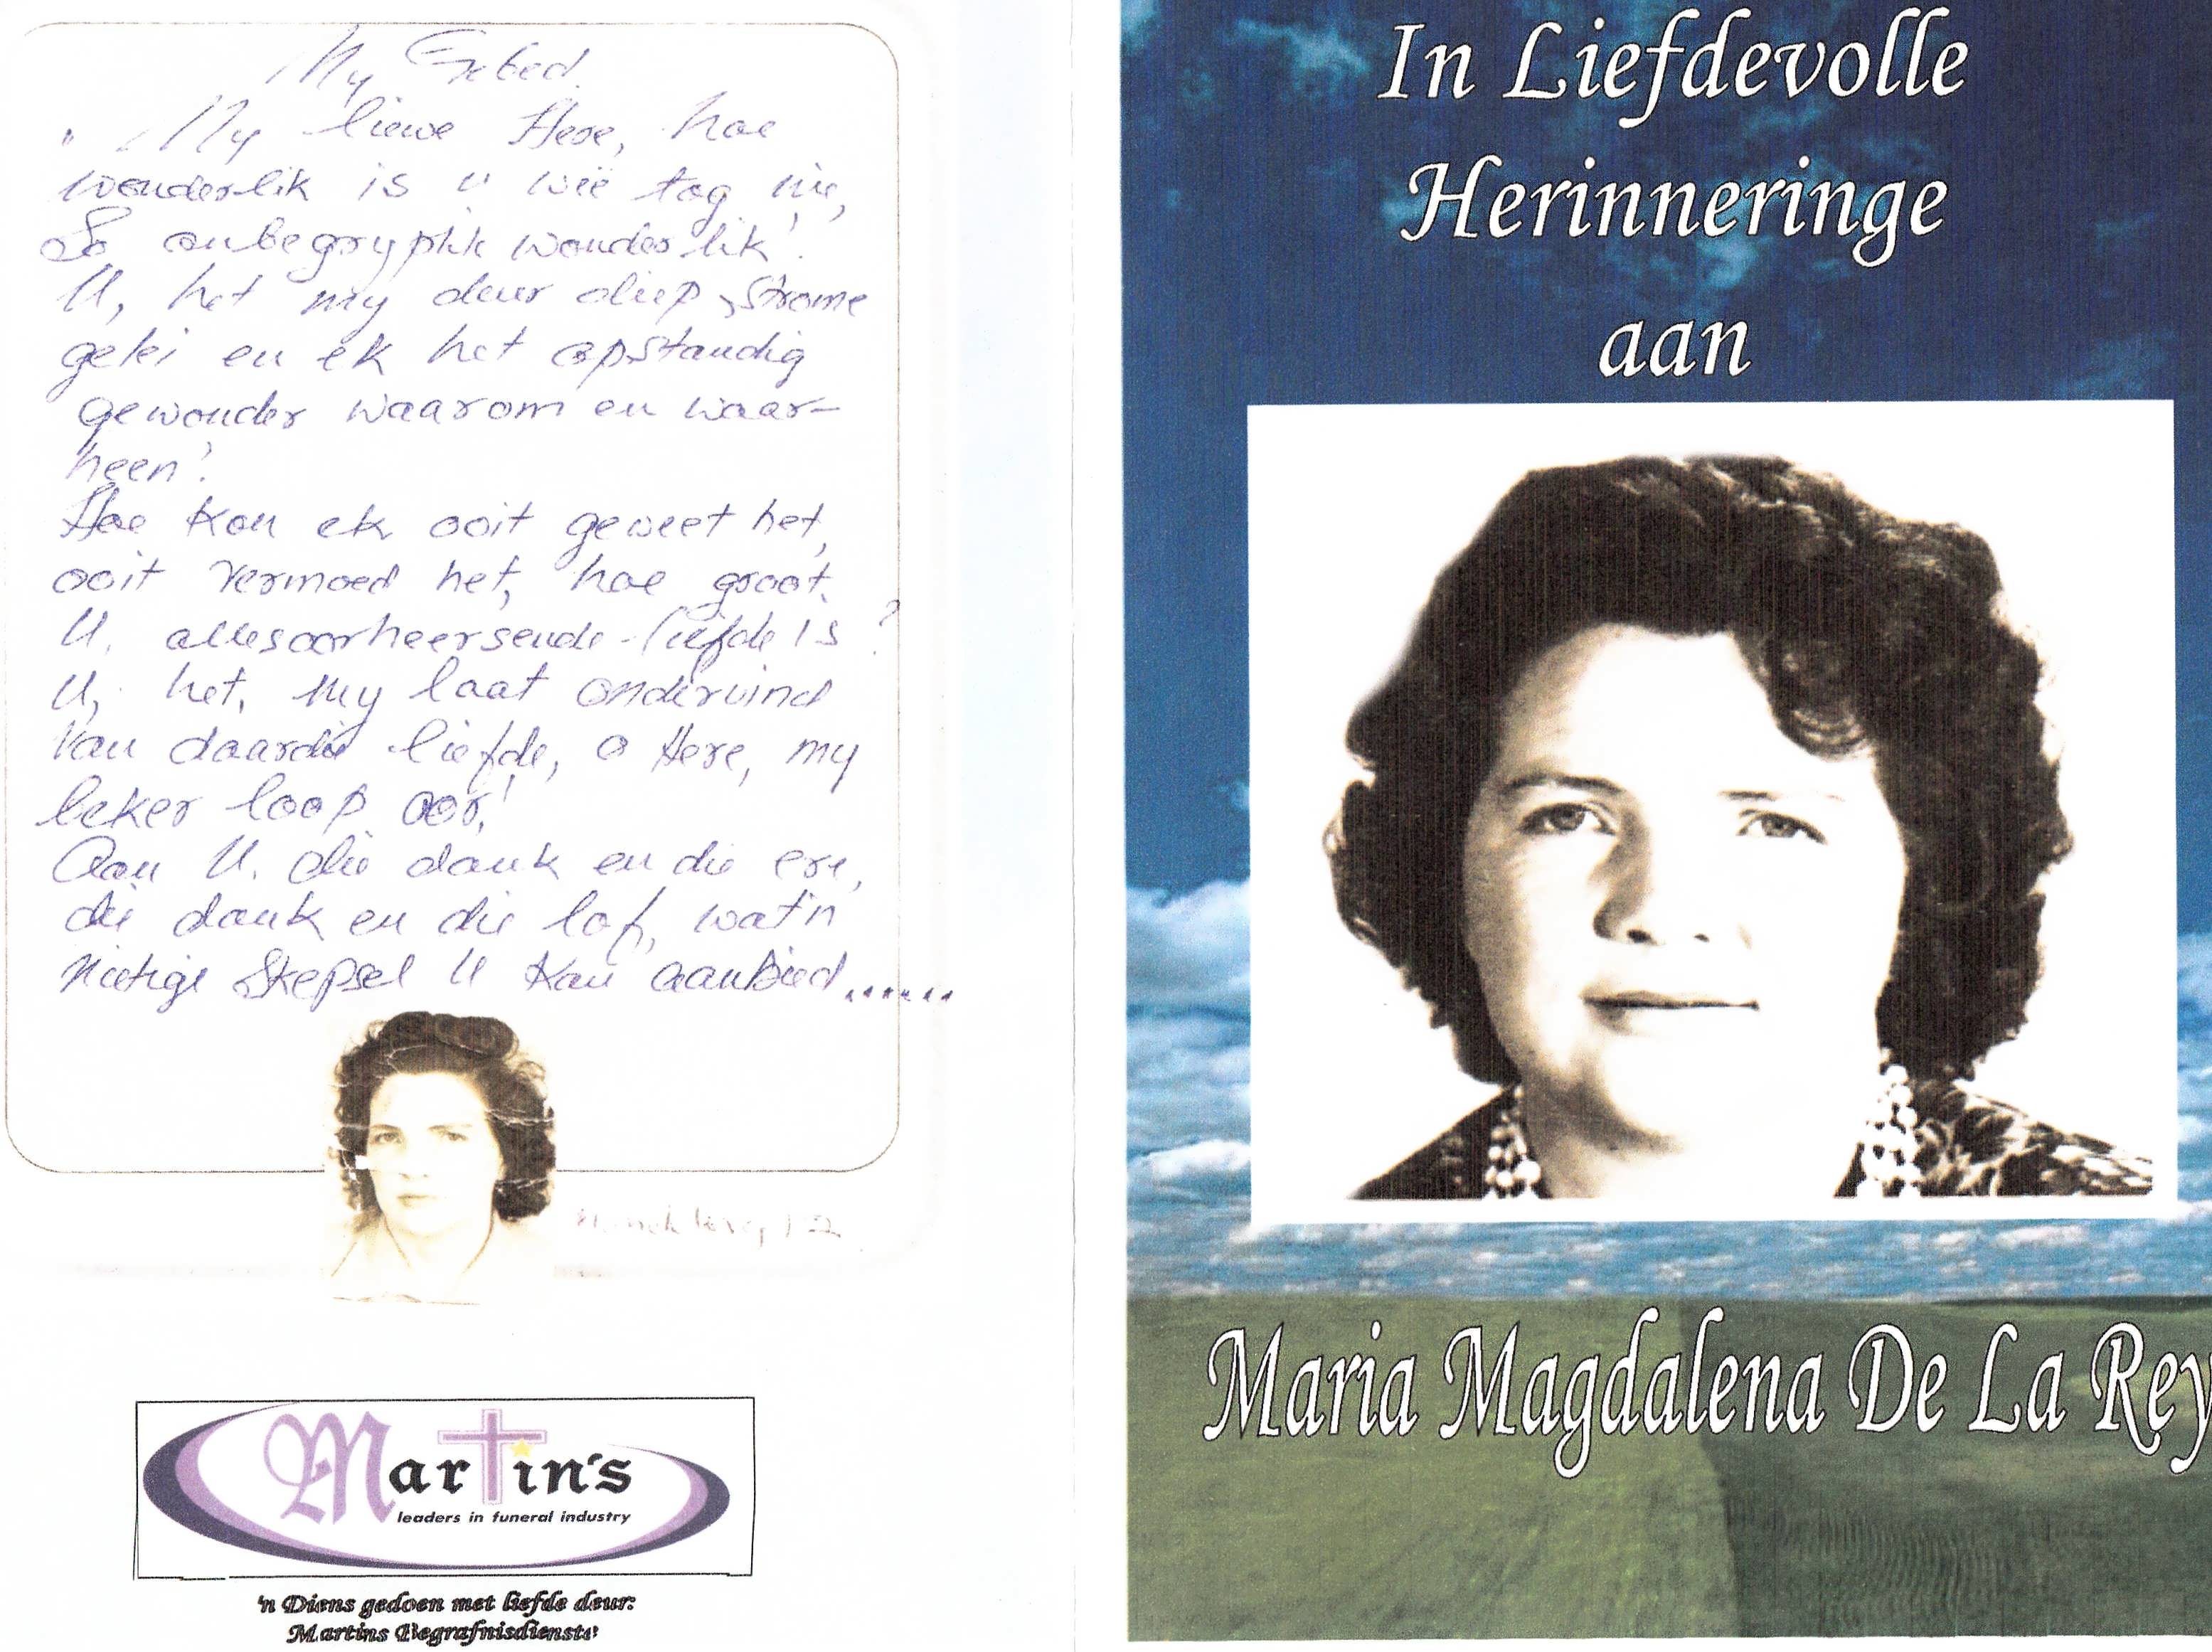 My Gebed.
" My liewe Here, hoe
wonderlik is U wie tog nie,
So onbegryplik wonderlik!
U, het my deur diep strome
gelei en ek het opstandig
gewonder waarom en waar-
heen?
Hoe kon ek ooit geweet het,
ooit vermoed het, hoe groot.
U. allesoorheersende-liefde is?
U, het, my laat ondervind
van daardie liefde, o Here, my
beker loop oor!
Aan U. die dank en die ere,
die dank en die lof, wat 'n
nietige skepsel U kan aanbied......
Martin's
leaders in funeral industry
'n Diens gedoen met liefde deur:
Martins Begrafnisdienste
In Liefdevolle
Herinneringe
aan
Maria Magdalena De La Rey